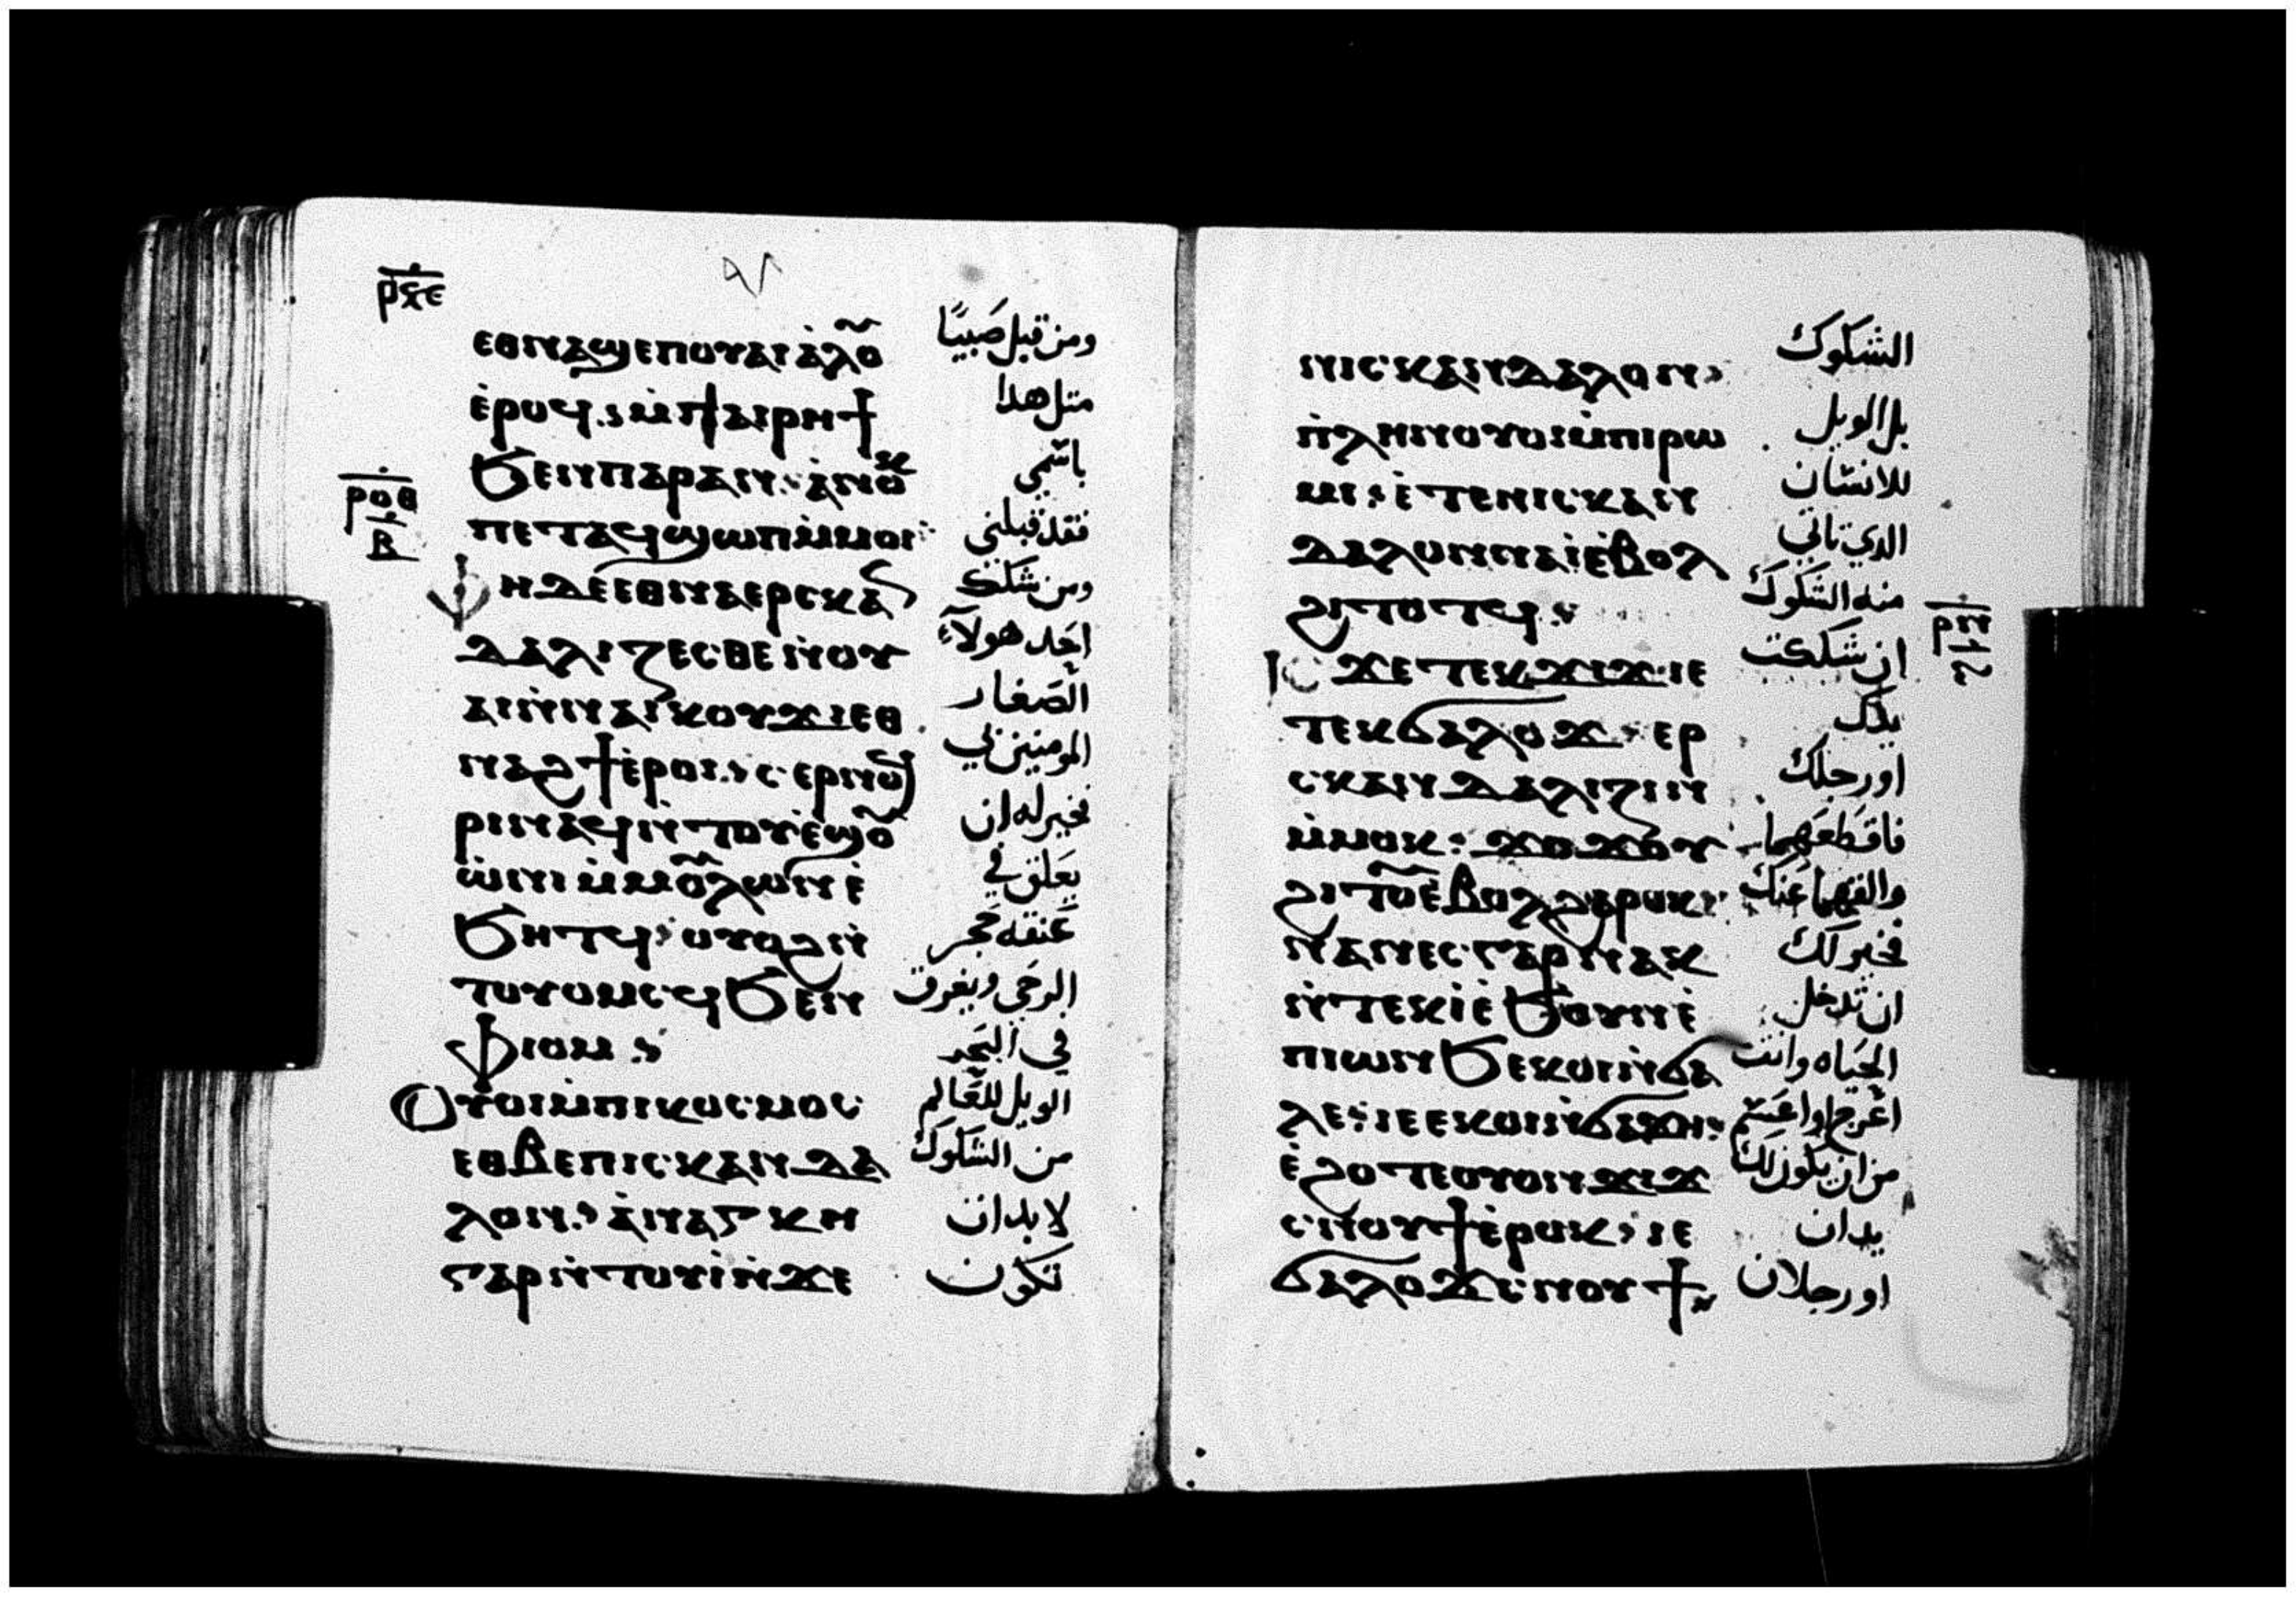 ⲉⲑⲛⲁϣⲉⲡⲟⲩⲁⲓ ⲁ̀ⲗⲟⲩ ومن قبل صَبيًا
ⲉ̀ⲣⲟϥ ⲙ̀ⲡⲁⲓⲣⲏϯ متل هدا
ϧⲉⲛⲡⲁⲣⲁⲛ ⲁ̀ⲛⲟⲕ باسمي
ⲣⲟⲑ
ⲃ
ⲡⲉⲧⲁϥϣⲱⲡ ⲙ̀ⲙⲟⲓ فقد قبلني
ⲫⲏⲇⲉ ⲉⲑⲛⲁⲉⲣⲥⲕⲁⲛ ومن شكك
ⲇⲁⲗⲓⲍⲉⲥⲑⲉ ⲛ̀ⲟⲩ احد هولآء
ⲁⲓ ⲛ̀ⲛⲁⲓⲕⲟⲩϫⲓ ⲉⲑ الصَغار
ⲛⲁϩϯ ⲉ̀ⲣⲟⲓ ⲥⲉⲣⲛⲟϥ المومنين بي
ⲣⲓ ⲛⲁϥ ⲛ̀ⲧⲟⲩⲉ̀ϣⲟⲩ فخير له ان
ⲱ̀ⲛⲓ ⲙ̀ⲙⲟⲩⲗⲱⲛ ⲉ̀ يعَلق في
ϧⲏⲧϥ ⲟⲩⲟϩ ⲛ̀ عَنقه حَجر
ⲧⲟⲩⲟⲙⲥϥ ϧⲉⲛ الرحَى ويغرق
ⲫⲓⲟⲙ في البَحر
ⲟⲩⲟⲓ ⲙ̀ⲡⲓⲕⲟⲥⲙⲟⲥ الويل للعَالم
ⲉⲑⲃⲉⲛⲓⲥⲕⲁⲛⲇⲁ من الشكوك
ⲗⲟⲛ ⲁ̀ⲛⲁⲅⲕⲏ لا بد ان
ⲅⲁⲣ ⲛ̀ⲧⲟⲩⲓ̀ ⲛ̀ϫⲉ تكون
ⲛⲓⲥⲕⲁⲛⲇⲁⲗⲟⲛ الشكوك
ⲡ̀ⲗⲏⲛ ⲟⲩⲟⲓ ⲙ̀ⲡⲓⲣⲱ بل الويل
ⲙⲓ ⲉ̀ⲧⲉⲛⲓⲥⲕⲁⲛ للانسان
ⲇⲁⲗⲟⲛ ⲛⲁⲓ̀ ⲉ̀ⲃⲟⲗ الدي تاتي
ϩⲓⲧⲟⲧϥ منه الشكوك
ⲣⲡ
ⲋ
ⲓⲥϫⲉ ⲧⲉⲕϫⲓϫ ⲓⲉ ان شككت
ⲧⲉⲕϭⲁⲗⲟϫ ⲉⲣ يدك
ⲥⲕⲁⲛⲇⲁⲗⲓⲍⲓⲛ او رجلك
ⲙ̀ⲙⲟⲕ ϫⲟϫⲟⲩ فاقطعَهما
ϩⲓⲧⲟⲩ ⲉ̀ⲃⲟⲗ ϩⲁⲣⲟⲕ والقهما عَنك
ⲛⲁⲛⲉⲥ ⲅⲁⲣ ⲛⲁⲕ فخير لك
ⲛ̀ⲧⲉⲕⲓ̀ ⲉ̀ϧⲟⲩⲛ ⲉ̀ ان تدخل
ⲡⲓⲱⲛϧ ⲉⲕⲟⲓ ⲛ̀ϭⲁ الحيَاه وانت
ⲗⲉ ⲓⲉ ⲉⲕⲟⲓ ⲛ̀ϭⲁϫⲏ اعَرج او اعَسم
ⲉ̀ϩⲟⲧⲉ ⲟⲩⲟⲛ ϫⲓϫ من ان يكون لك
ⲥ̀ⲛⲟⲩϯ ⲉ̀ⲣⲟⲕ ⲓⲉ يدان
ϭⲁⲗⲟϫ ⲥ̀ⲛⲟⲩϯ او رجلان